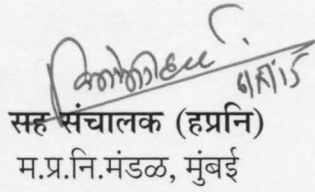 सह संचालक (हप्रनि)
म.प्र.नि.मंडळ, मुंबई